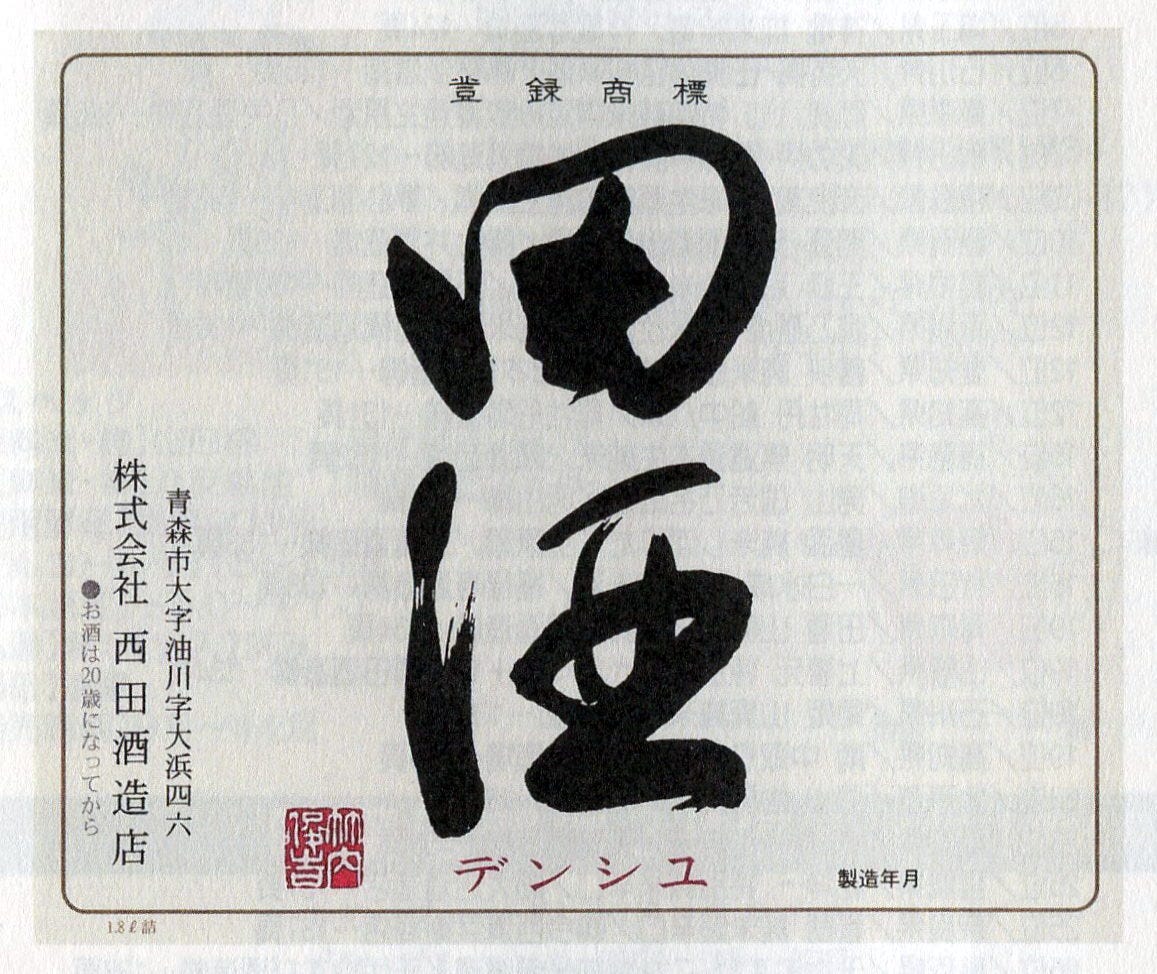 登録商標
田酒
デンシユ
製造年月
青森市大字油川字大浜四六
株式会社 西田酒造店
●お酒は20歳になってから
1.8ℓ詰